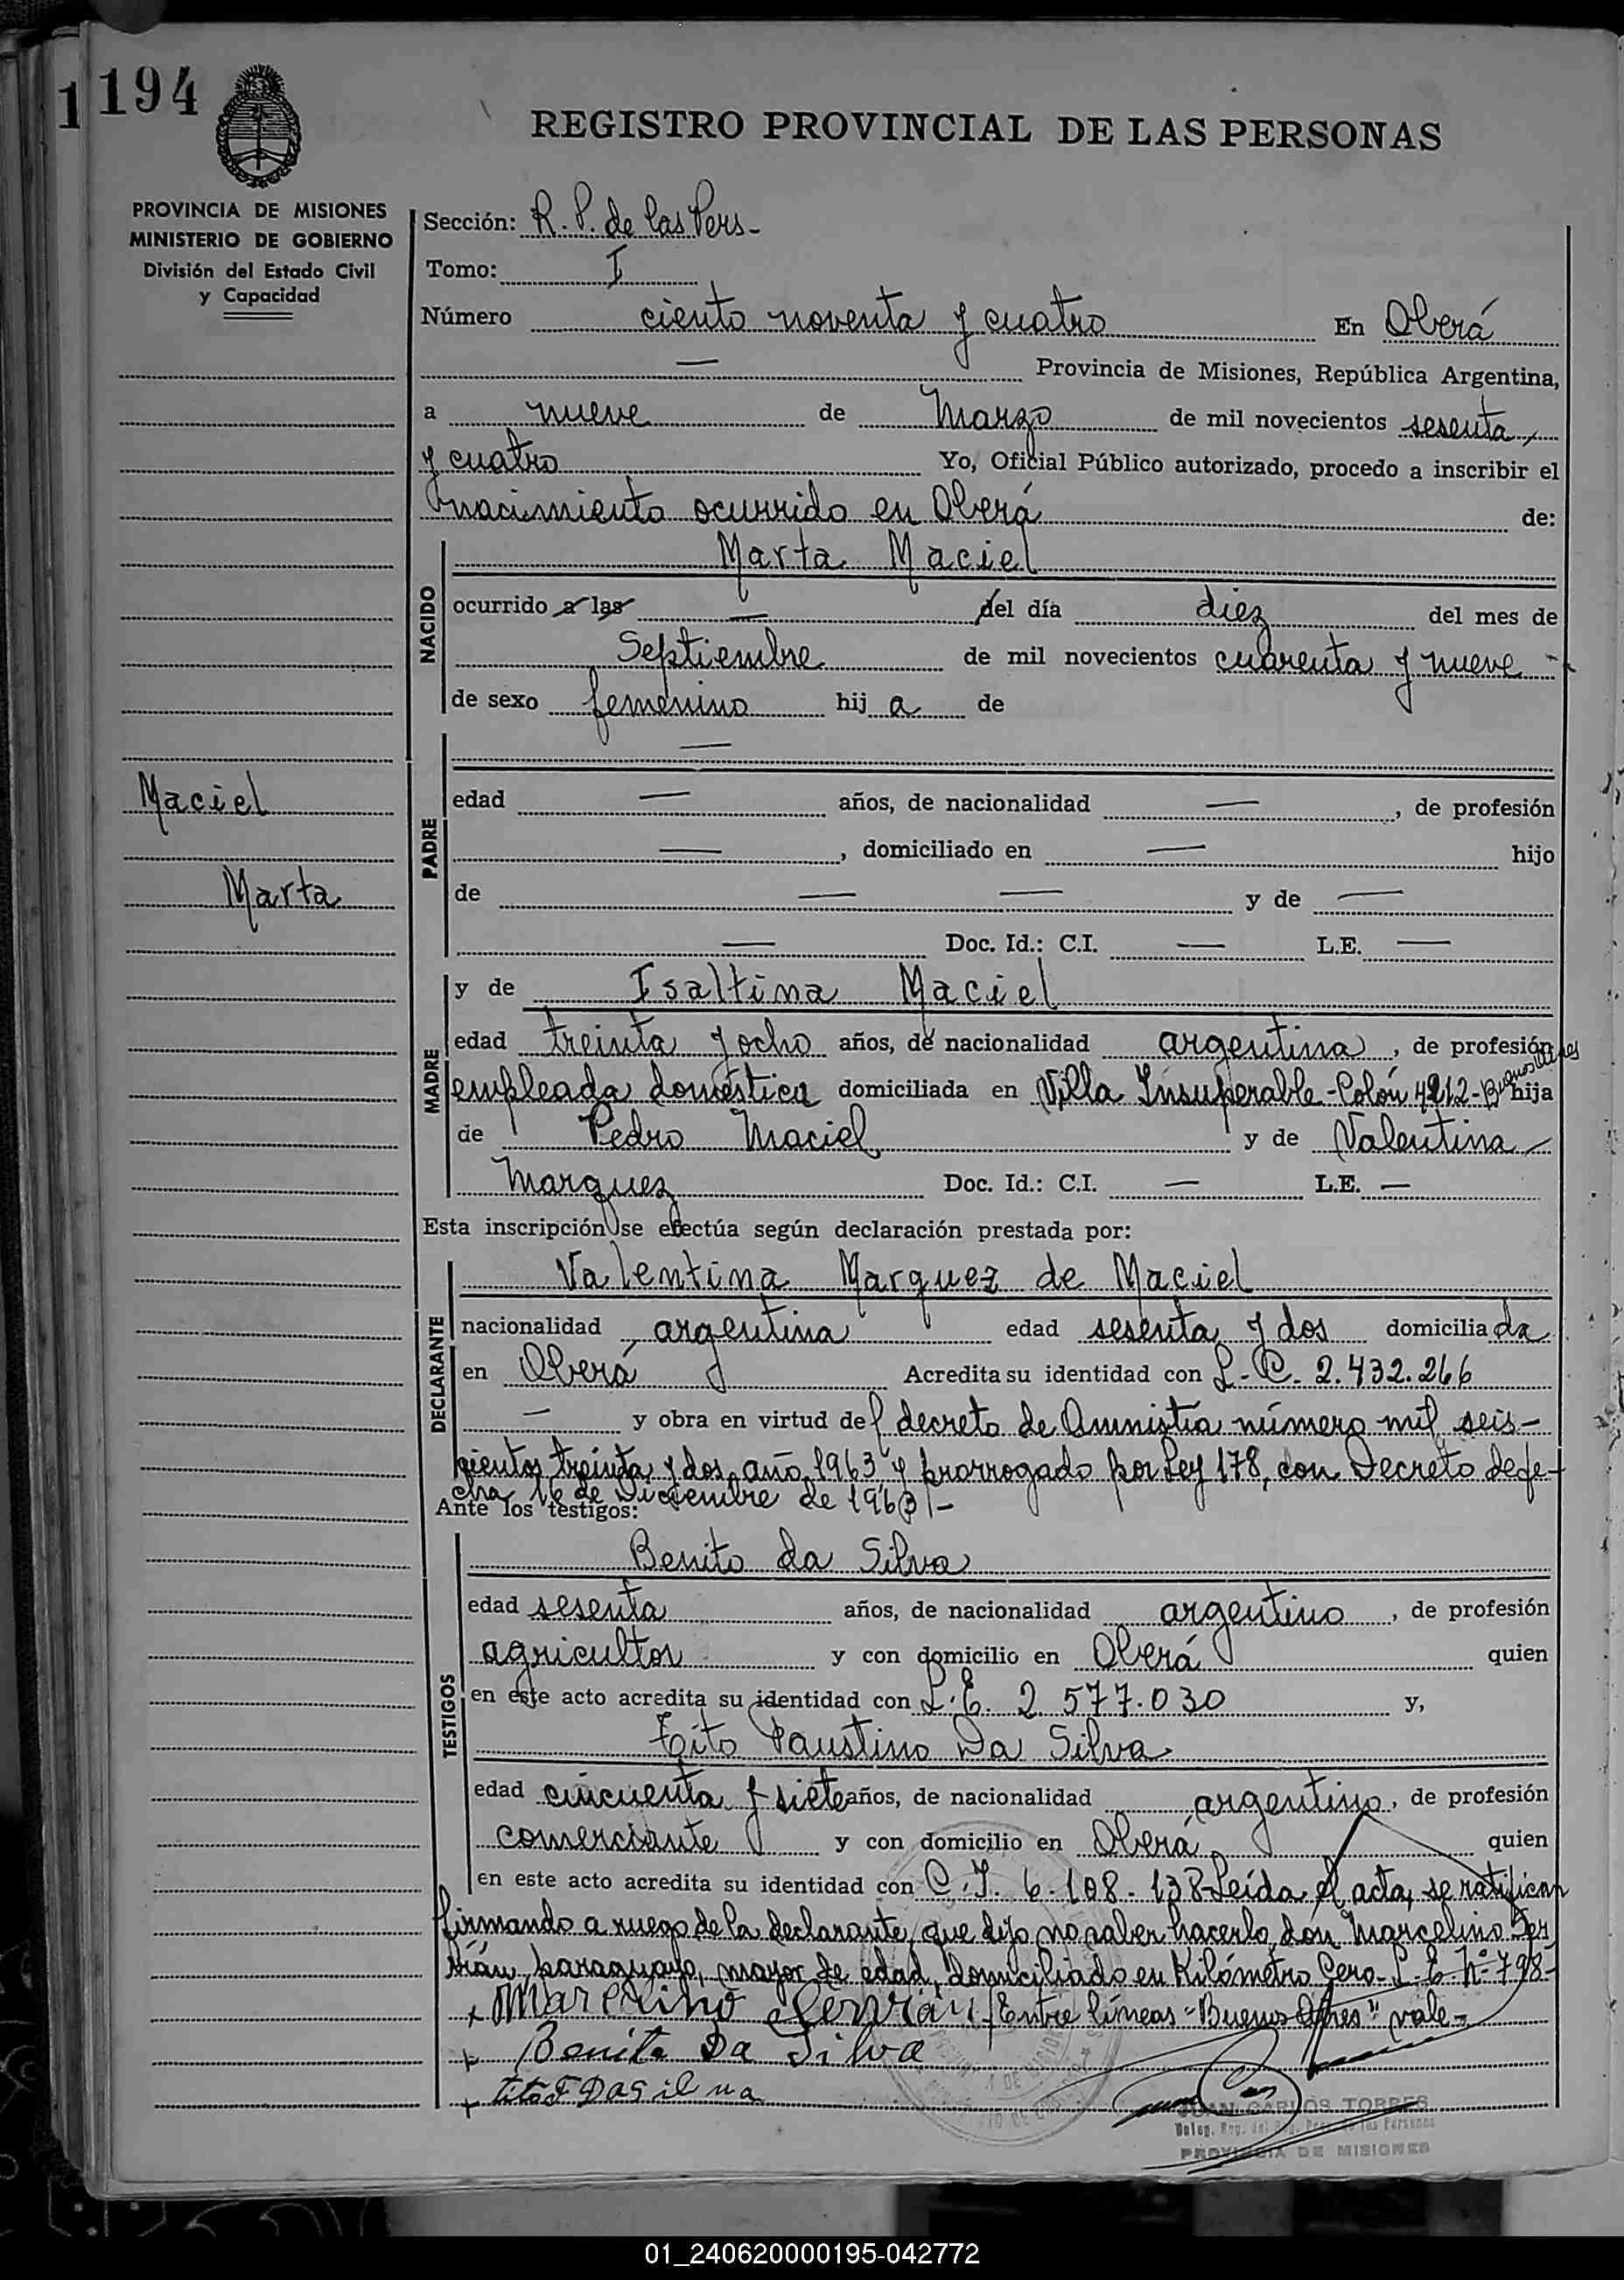 1194
REGISTRO PROVINCIAL DE LAS PERSONAS
PROVINCIA DE MISIONES
MINISTERIO DE GOBIERNO
División del Estado Civil
y Capacidad
Maciel
Marta
Sección: R. P. de las Pers-
Tomo: I
Número ciento noventa y cuatro En Oberá
— Provincia de Misiones, República Argentina,
a nueve de Marzo de mil novecientos sesenta
y cuatro Yo, Oficial Público autorizado, procedo a inscribir el
nacimiento ocurrido en Oberá de:
NACIDO
Marta Maciel
ocurrido a las — del día diez del mes de
Septiembre de mil novecientos cuarenta y nueve -
de sexo femenino hij a de
PADRE
—
edad — años, de nacionalidad —, de profesión
—, domiciliado en — hijo
de — — y de —
— Doc. Id.: C.I. — L.E. —
MADRE
y de Isaltina Maciel
edad treinta y ocho años, de nacionalidad argentina, de profesión
empleada doméstica domiciliada en Villa Insuperable-Colón 4212-Buenos Aires hija
de Pedro Maciel y de Valentina
Marquez Doc. Id.: C.I. — L.E. —
Esta inscripción se efectúa según declaración prestada por:
DECLARANTE
Valentina Marquez de Maciel
nacionalidad argentina edad sesenta y dos domicilia da
en Oberá Acredita su identidad con L.C. 2.432.266
— y obra en virtud del decreto de Amnistía número mil seis-
cientos treinta y dos, año 1963 y prorrogado por Ley 178, con Decreto de fe-
cha 16 de Diciembre de 1963/-
Ante los testigos:
TESTIGOS
Benito da Silva
edad sesenta años, de nacionalidad argentino, de profesión
agricultor y con domicilio en Oberá quien
en este acto acredita su identidad con L.E. 2 577.030 y,
Tito Faustino Da Silva
edad cincuenta y siete años, de nacionalidad argentino, de profesión
comerciante y con domicilio en Oberá quien
en este acto acredita su identidad con C.I. 6.108.138-Leída el acta, se ratifican
firmando a ruego de la declarante, que dijo no saber hacerlo, don Marcelino Ser
vián, paraguayo, mayor de edad, domiciliado en Kilómetro Cero-L.E. Nº 798-
+ Marcelino Servián /Entre líneas-"Buenos Aires" vale-
+ Benito Da Silva
+ tito F Dasilva
JUAN CARLOS TORRES
Deleg. Reg. del Reg. Prov. de las Personas
PROVINCIA DE MISIONES
01_240620000195-042772